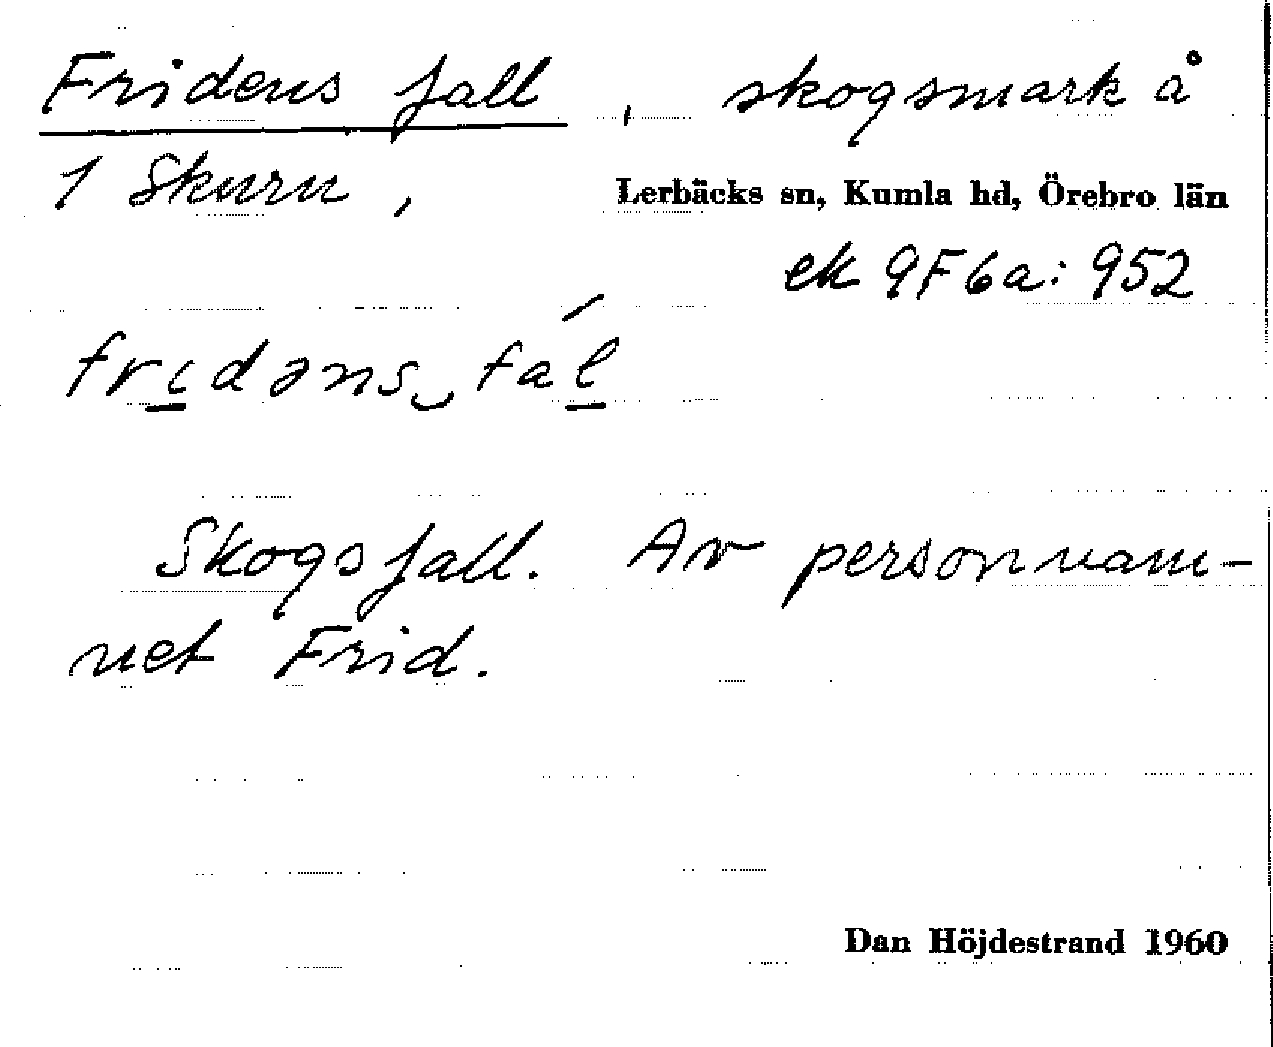 Fridens fall, skogsmark å
1 Skuru,
Lerbäcks sn, Kumla hd, Örebro län
ek 9F6a: 952
fridəns fál
Skogsfall. Av personnam-
net Frid.
Dan Höjdestrand 1960